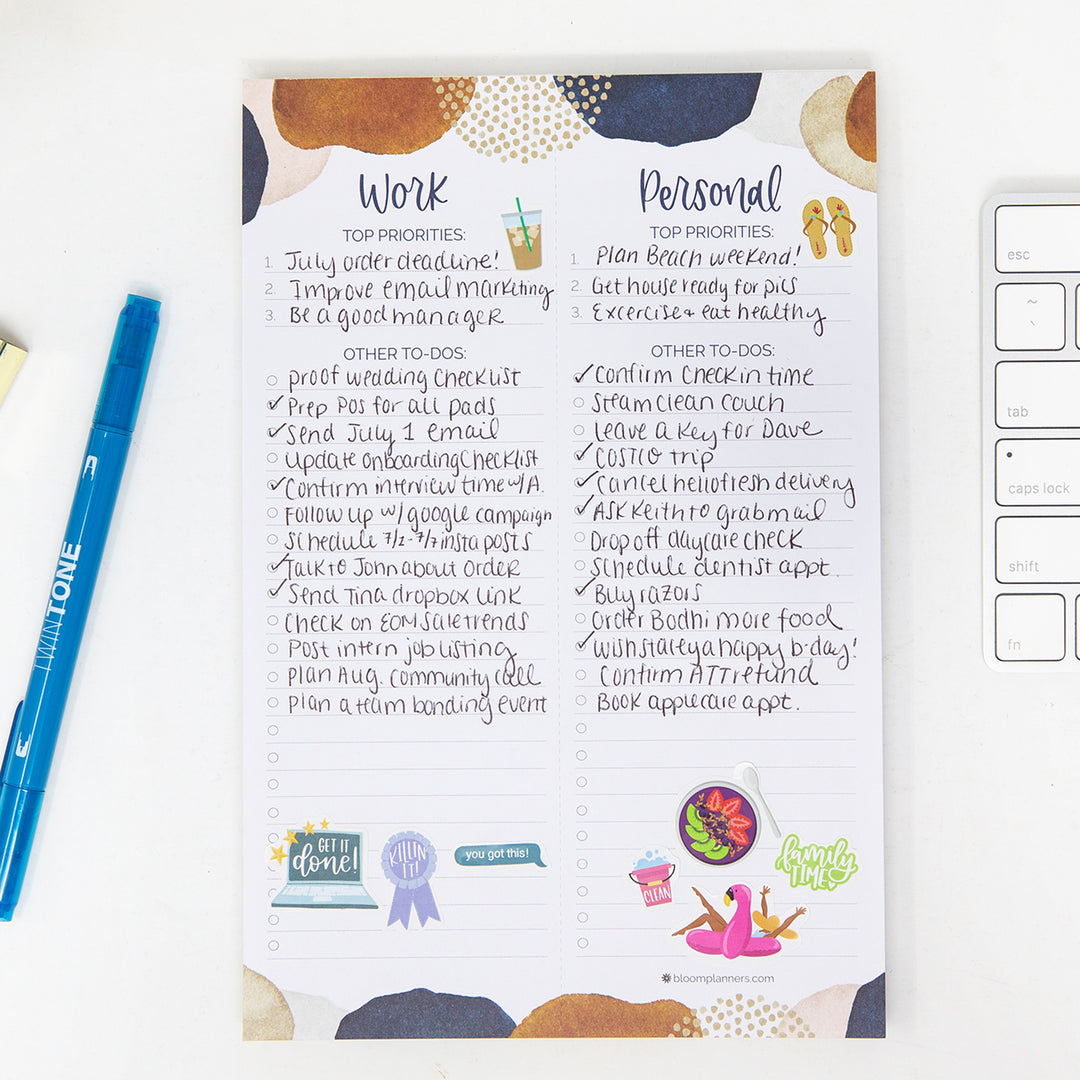 Work
TOP PRIORITIES:
1. July order deadline!
2. Improve email marketing
3. Be a good manager
OTHER TO-DOS:
proof wedding checklist
✓ Prep POS for all pads
✓ Send July 1 email
update onboarding checklist
✓ Confirm interview time w/A.
Follow up w/ google campaign
Schedule 7/1-7/7 insta posts
✓ Talk to John about order
✓ Send Tina dropbox link
Check on EOM sale trends
Post intern job listing
Plan Aug. community call
Plan a team bonding event
GET IT
done!
KILLIN
IT!
you got this!
Personal
TOP PRIORITIES:
1. Plan Beach weekend!
2. Get house ready for pics
3. Excercise + eat healthy
OTHER TO-DOS:
✓ Confirm check in time
Steam clean couch
leave a key for Dave
✓ COSTCO trip
✓ Cancel hellofresh delivery
✓ ASK Keith to grab mail
Drop off daycare check
Schedule dentist appt.
✓ Buy razors
Order Bodhi more food
✓ Wish stacey a happy b-day!
Confirm ATT refund
Book applecare appt.
family
TIME
CLEAN
bloomplanners.com
TWINTONE
esc
~
`
tab
caps lock
shift
fn